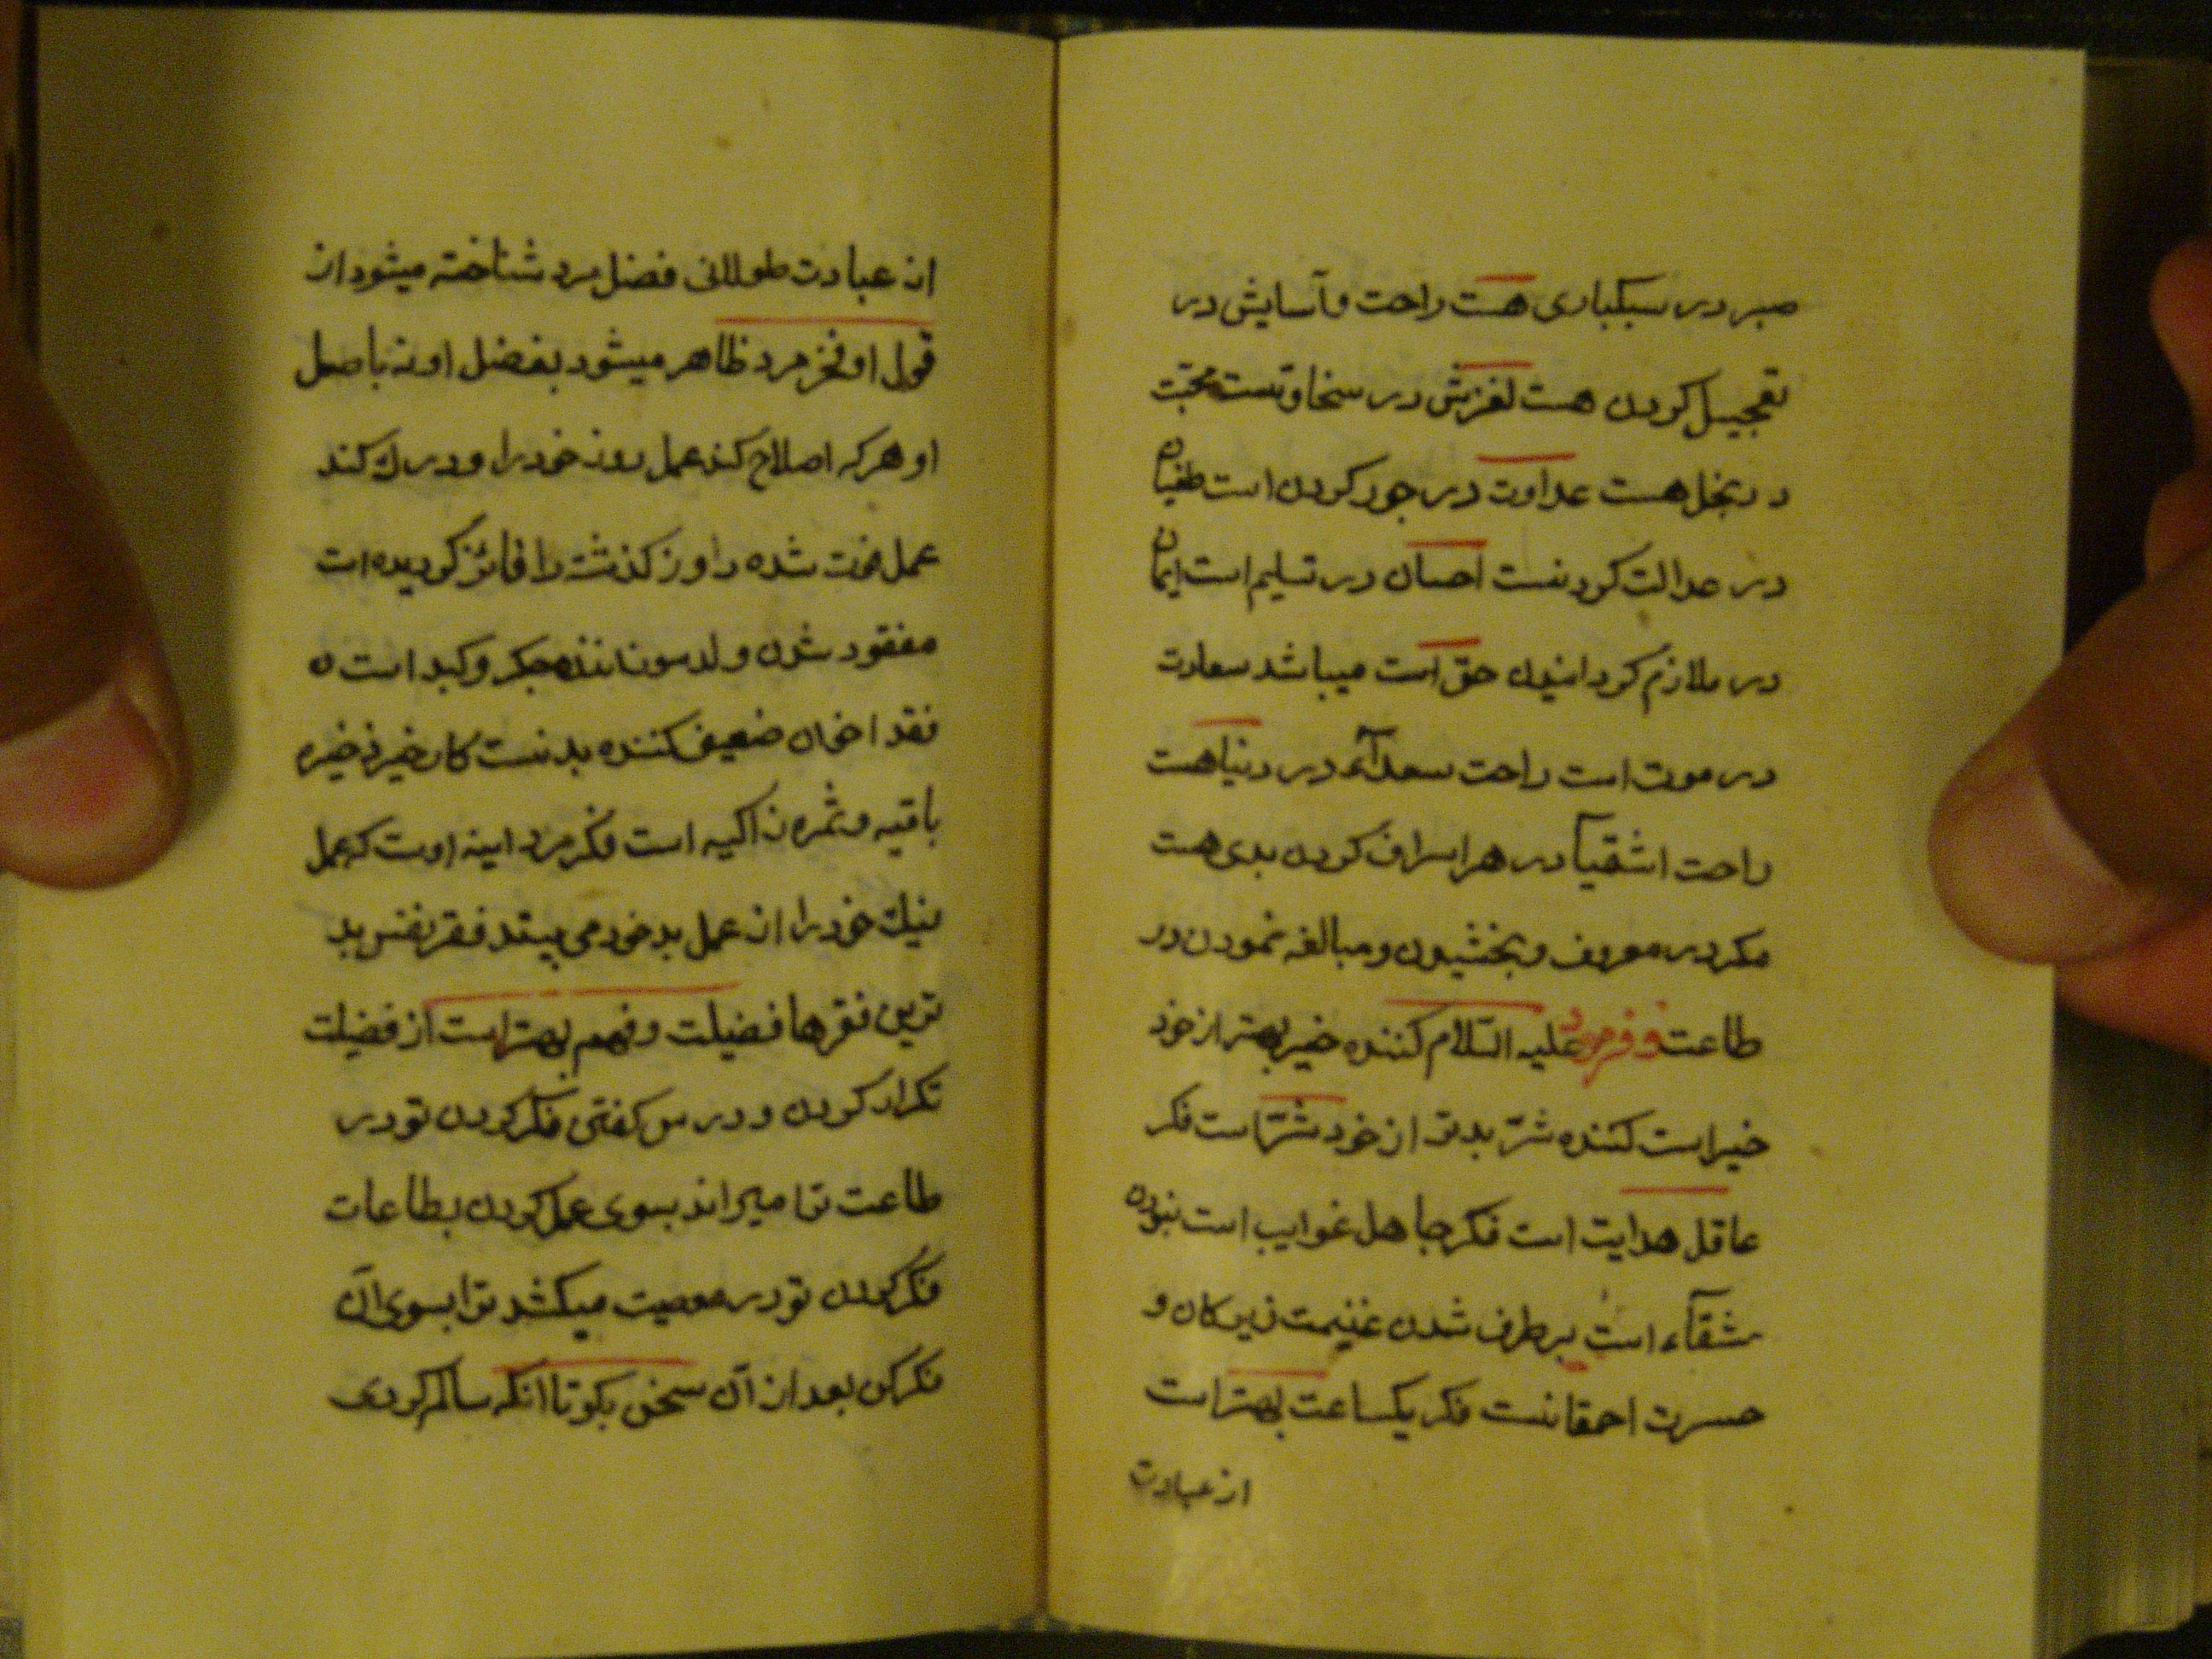 صبر در سبکباری هست راحت و آسایش در
تعجیل کردن هست لغزش در سخاوتست محبّت
در بخل هست عداوت در جور کردن است طغیان
در عدالت کردنست احسان در تسلیم است ایمان
در ملازم کردانیدن حقّ است میباشد سعادت
در موت است راحت سعدآء در دنیا هست
راحت اشقیآ در هر اسراف کردن بدی هست
مکر در معروف و بخشیدن و مبالغه نمودن در
طاعت و فرمود علیه السّلام کننده خیر بهتر از خود
خیر است کننده شرّ بدتر از خود شرّ است فکر
عاقل هدایت است فکر جاهل غوایب است نبودن
شقآء است برطرف شدن غنیمت زیرکان و
حسرت احمقانست فکر یکساعت بهتر است
از عبادت
از عبادت طولانی فضل مرد شناخته میشود از
قول او فخر مرد ظاهر میشود بفضل او نه باصل
او هرکه اصلاح کند عمل روز خود را و درک کند
عمل فوت شده روز کذشته را فائز کردیده است
مفقود شدن ولد سوزاننده جکر و کبد است
فقد اخوان ضعیف کننده بدنست کار خیر ذخیره
باقیه و ثمره زاکیه است فکر مرد اینه اوست که عمل
نیک خود را از عمل بد خود می بیند فقر نفس بد
ترین فقرها فضیلت و فهم بهتر است از فضیلت
تکرار کردن و درس کفتن فکر کردن تو در
طاعت ترا میراند بسوی عمل کردن بطاعات
فکر کردن تو در معصیت میکشد ترا بسوی آن
فکر کن بعد از آن سخن بکو تا انکه سالم کردی